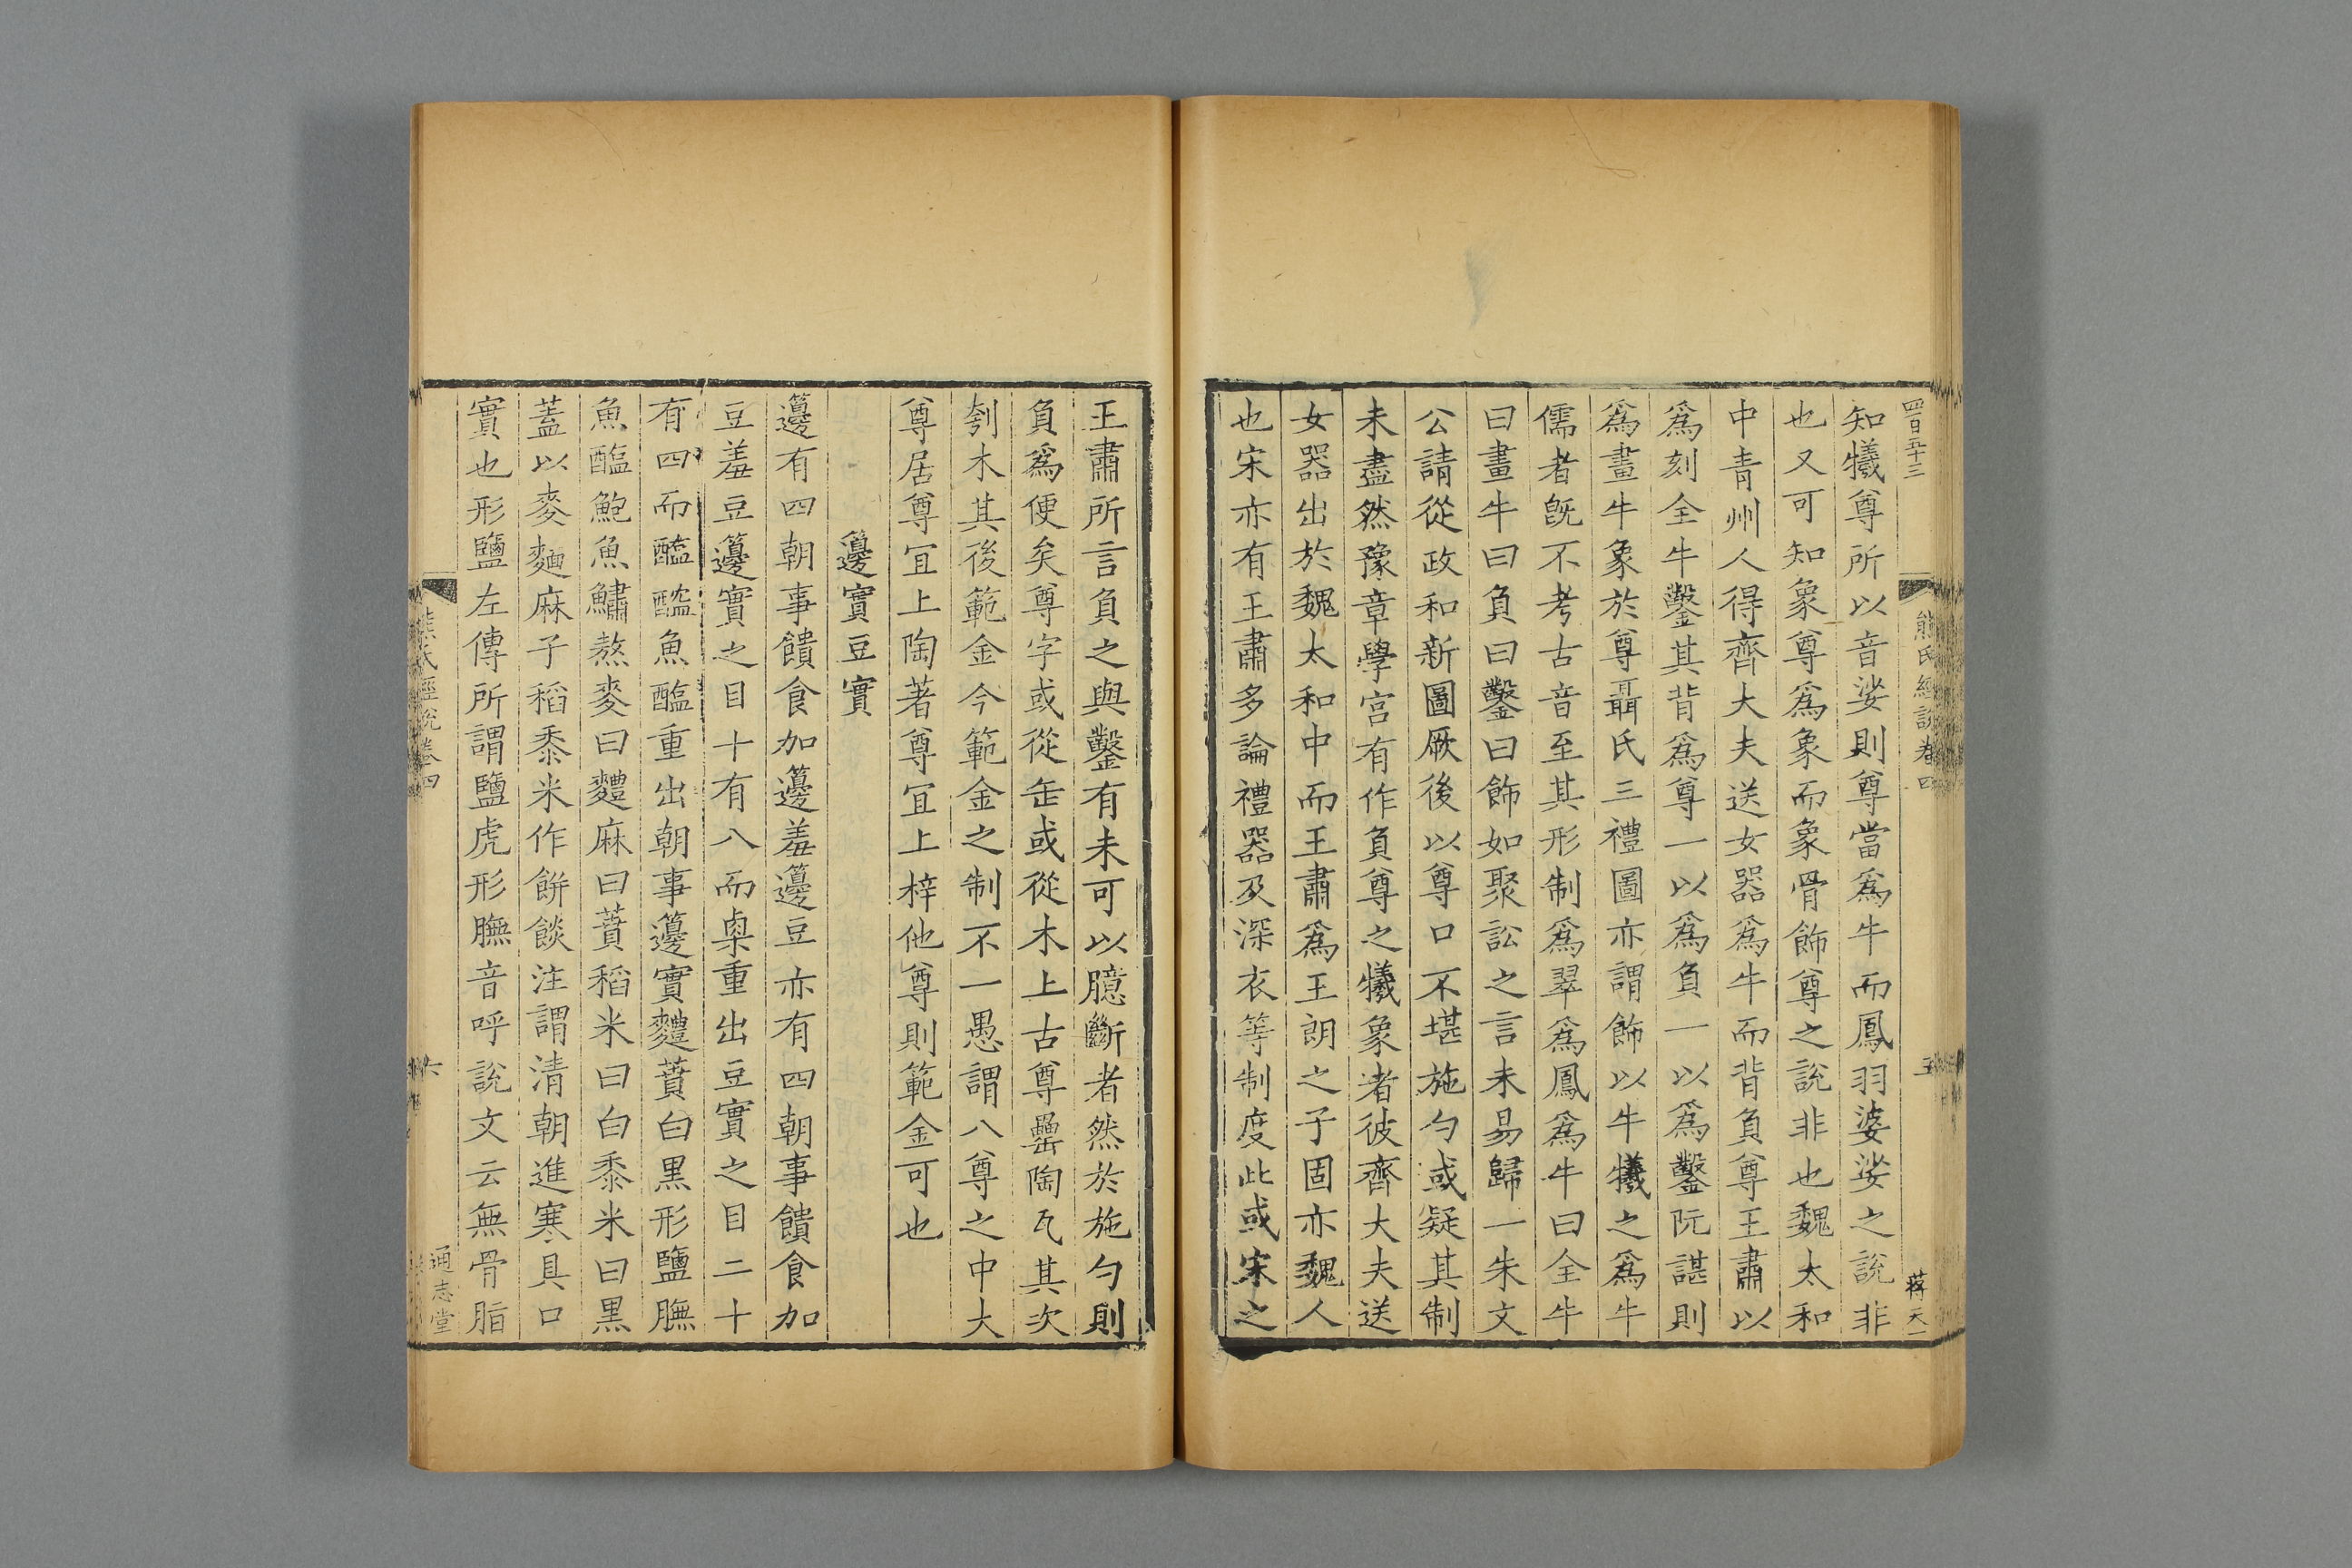 四百五十三
熊氏經說卷四
五
蔣天一
知犧尊所以音娑則尊當爲牛而鳳羽婆娑之說非
也又可知象尊爲象而象骨飾尊之說非也魏太和
中青州人得齊大夫送女器爲牛而背負尊王肅以
爲刻全牛鑿其背爲尊一以爲負一以爲鑿阮諶則
爲畫牛象於尊聶氏三禮圖亦謂飾以牛犧之爲牛
儒者旣不考古音至其形制爲翠爲鳳爲牛曰全牛
曰畫牛曰負曰鑿曰飾如聚訟之言未易歸一朱文
公請從政和新圖厥後以尊口不堪施勺或疑其制
未盡然豫章學宫有作負尊之犧象者彼齊大夫送
女器出於魏太和中而王肅爲王朗之子固亦魏人
也宋亦有王肅多論禮器及深衣等制度此或宋之
王肅所言負之與鑿有未可以臆斷者然於施勺則
負爲便矣尊字或從缶或從木上古尊罍陶瓦其次
刳木其後範金今範金之制不一愚謂八尊之中大
尊居尊冝上陶著尊冝上梓他尊則範金可也
籩實豆實
籩有四朝事饋食加籩羞籩豆亦有四朝事饋食加
豆羞豆籩實之目十有八而㮚重出豆實之目二十
有四而醢醓魚醢重出朝事籩實麷蕡白黒形鹽膴
魚醢鮑魚鱐熬麥曰麷麻曰蕡稻米曰白黍米曰黒
蓋以麥麵麻子稻黍米作餅餤注謂清朝進寒具口
實也形鹽左傳所謂鹽虎形膴音呼說文云無骨腊
熊氏經說卷四
六
通志堂